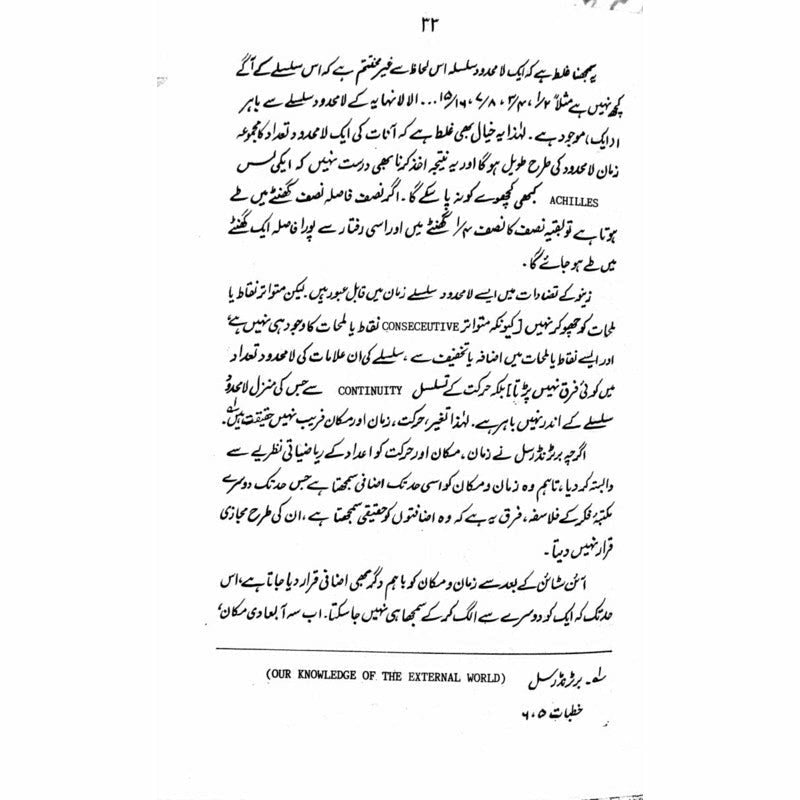 ۳۲
یہ سمجھنا غلط ہے کہ ایک لامحدود سلسلہ اس لحاظ سے غیر مختتم ہے کہ اس سلسلے کے آگے
کچھ نہیں ہے مثلاً ۱/۲، ۳/۴، ۷/۸، ۱۵/۱۶... الا لا نہایہ کے لامحدود سلسلے سے باہر
۱(ایک) موجود ہے۔ لہٰذا یہ خیال بھی غلط ہے کہ آنات کی ایک لامحدود تعداد کا مجموعہ
زمان لامحدود کی طرح طویل ہوگا اور یہ نتیجہ اخذ کرنا بھی درست نہیں کہ ایکی لس
ACHILLES کبھی کچھوے کو نہ پا سکے گا۔ اگر نصف فاصلہ نصف گھنٹے میں طے
ہوتا ہے تو بقیہ نصف کا نصف ۱/۴ گھنٹے میں اور اسی رفتار سے پورا فاصلہ ایک گھنٹے
میں طے ہو جائے گا۔
زینو کے تضادات میں ایسے لامحدود سلسلے زمان میں قابل عبور ہیں۔ لیکن متواتر نقاط یا
لمحات کو چھو کر نہیں [کیونکہ متواتر CONSECEUTIVE نقاط یا لمحات کا وجود ہی نہیں ہے
اور ایسے نقاط یا لمحات میں اضافہ یا تخفیف سے، سلسلے کی ان علامات کی لامحدود تعداد
میں کوئی فرق نہیں پڑتا] بلکہ حرکت کے تسلسل CONTINUITY سے جس کی منزل لامحدود
سلسلے کے اندر نہیں باہر ہے۔ لہٰذا تغیر، حرکت، زمان اور مکان فریب نہیں حقیقت ہیں۔؎۱
اگرچہ برٹرنڈرسل نے زمان، مکان اور حرکت کو اعداد کے ریاضیاتی نظریے سے
وابستہ کر دیا، تاہم وہ زمان و مکان کو اسی حد تک اضافی سمجھتا ہے جس حد تک دوسرے
مکتبۂ فکر کے فلاسفہ، فرق یہ ہے کہ وہ اضافتوں کو حقیقی سمجھتا ہے، ان کی طرح مجازی
قرار نہیں دیتا۔
آئن شائن کے بعد سے زمان و مکان کو باہم دگر بھی اضافی قرار دیا جاتا ہے، اس
حد تک کہ ایک کو دوسرے سے الگ کر کے سمجھا ہی نہیں جا سکتا۔ اب سہ ابعادی مکان،
؎۱۔ برٹرنڈرسل (OUR KNOWLEDGE OF THE EXTERNAL WORLD)
خطبات ۶،۵